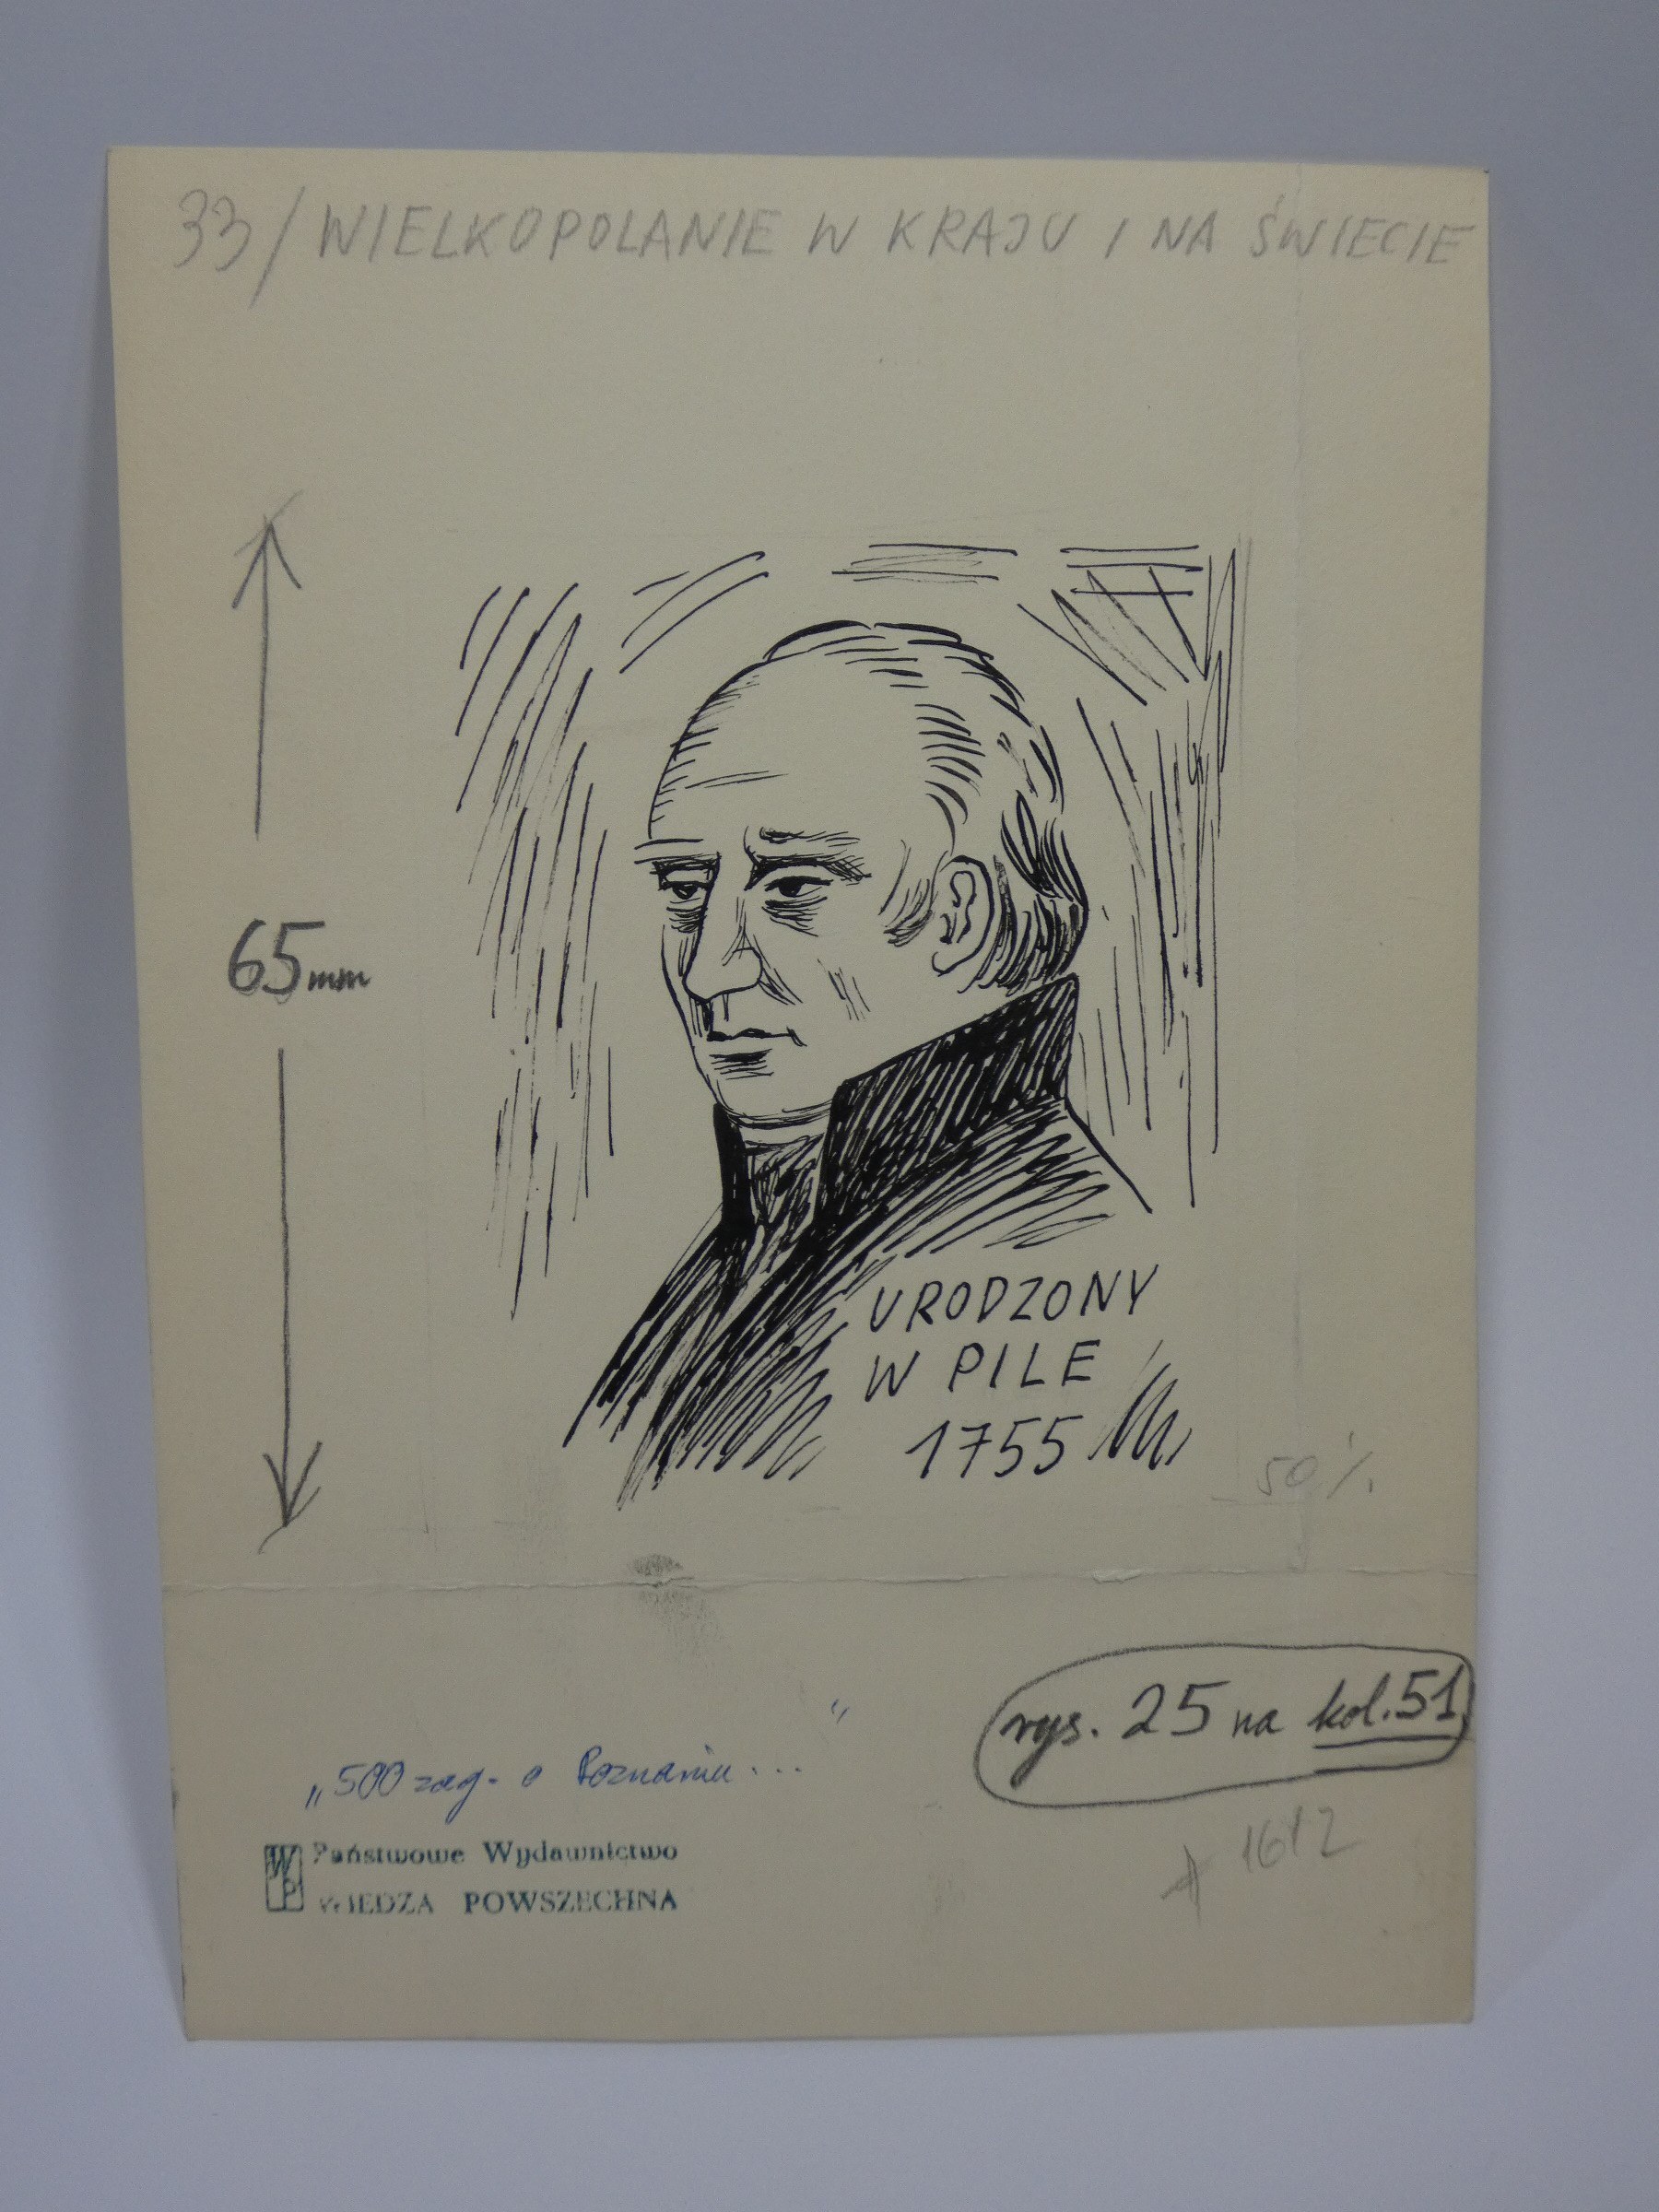 33/ WIELKOPOLANIE W KRAJU I NA ŚWIECIE
65 mm
URODZONY
W PILE
1755
50%
rys. 25 na kol. 51
„500 zag. o Poznaniu..."
1612
Państwowe Wydawnictwo
WP
WIEDZA POWSZECHNA